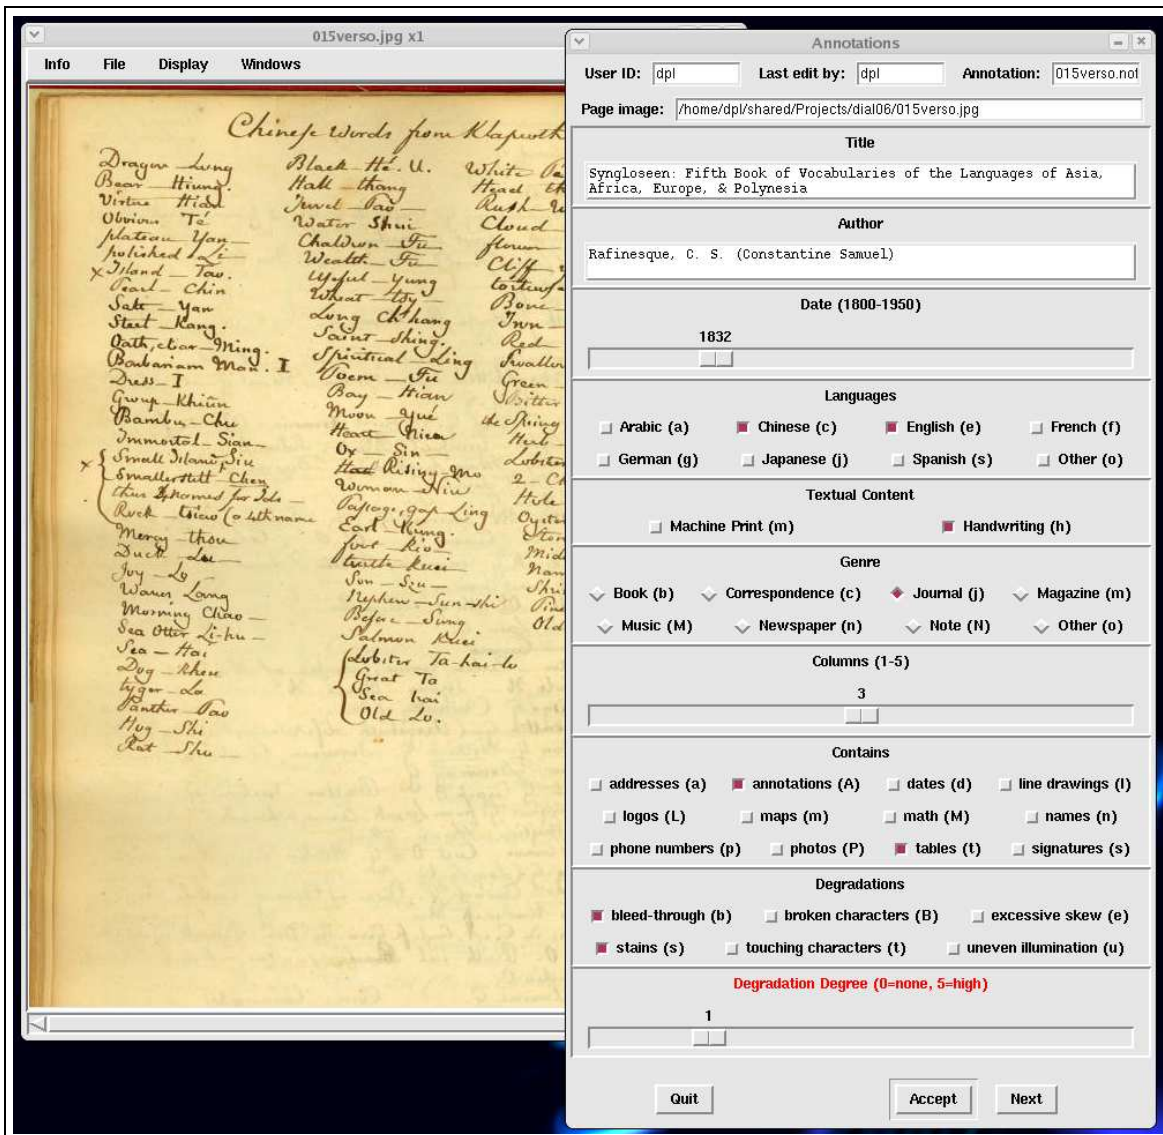 015verso.jpg x1
Info File Display Windows
Chinese Words from Klaproth
Dragon _ Lung
Bear _ Hiung.
Virtue Hian
Obvious Té
plateau Yan
polished Li
x Island _ Tao.
Pearl _ Chin
Salt _ Yan
Steel _ Kang.
Oath, clear _ Ming.
Barbarian Man. I
Dress _ I
Group _ Khiün
Bambu _ Chu
Immortal _ Sian
x Small Island, Siu
Smaller still _ Chen
thus 4 named for Isls _
Rock _ tsiao (a 4th name
Mercy _ thou
Duck _ Lu
Joy _ Lo
Waves Lang
Morning Chao _
Sea Otter Li-hu _
Sea _ Hai
Dog _ Khen
tyger _ La
Panther _ Pao
Hog _ Shi
Rat _ Shu
Black _ Hé. U.
Hall _ thang
Jewel _ Pao _
Water Shui
Chaldron _ Fu
Wealth _ Fu
Useful _ yung
Wheat _ tsy _
Long Ch'hang
Saint _ shing.
Spiritual _ Ling
Poem _ Fu
Bay _ Hian
Moon _ yué
Heart Nieu
Ox _ Sin _
Rising _ Mo
Woman _ Niu
Passage, gap Ling
Earl _ Kung.
foot _ Kio _
turtle Kuei
Son _ Szu _
Nephew _ Sun-shi
Before _ Sung
Salmon Kuei
Lobster Ta-hai-lo
Great Ta
Sea hai
Old Lo.
White
Head
Rush
Cloud
flower
Cliff
Bone
Iron
Red
Swallow
Green
Bitter
the Spring
Herb
Lobster
2 - Ch
Hole
Oyster
Old
Annotations
User ID: dpl Last edit by: dpl Annotation: 015verso.not
Page image: /home/dpl/shared/Projects/dial06/015verso.jpg
Title
Syngloseen: Fifth Book of Vocabularies of the Languages of Asia,
Africa, Europe, & Polynesia
Author
Rafinesque, C. S. (Constantine Samuel)
Date (1800-1950)
1832
Languages
Arabic (a) Chinese (c) English (e) French (f)
German (g) Japanese (j) Spanish (s) Other (o)
Textual Content
Machine Print (m) Handwriting (h)
Genre
Book (b) Correspondence (c) Journal (j) Magazine (m)
Music (M) Newspaper (n) Note (N) Other (o)
Columns (1-5)
3
Contains
addresses (a) annotations (A) dates (d) line drawings (l)
logos (L) maps (m) math (M) names (n)
phone numbers (p) photos (P) tables (t) signatures (s)
Degradations
bleed-through (b) broken characters (B) excessive skew (e)
stains (s) touching characters (t) uneven illumination (u)
Degradation Degree (0=none, 5=high)
1
Quit Accept Next